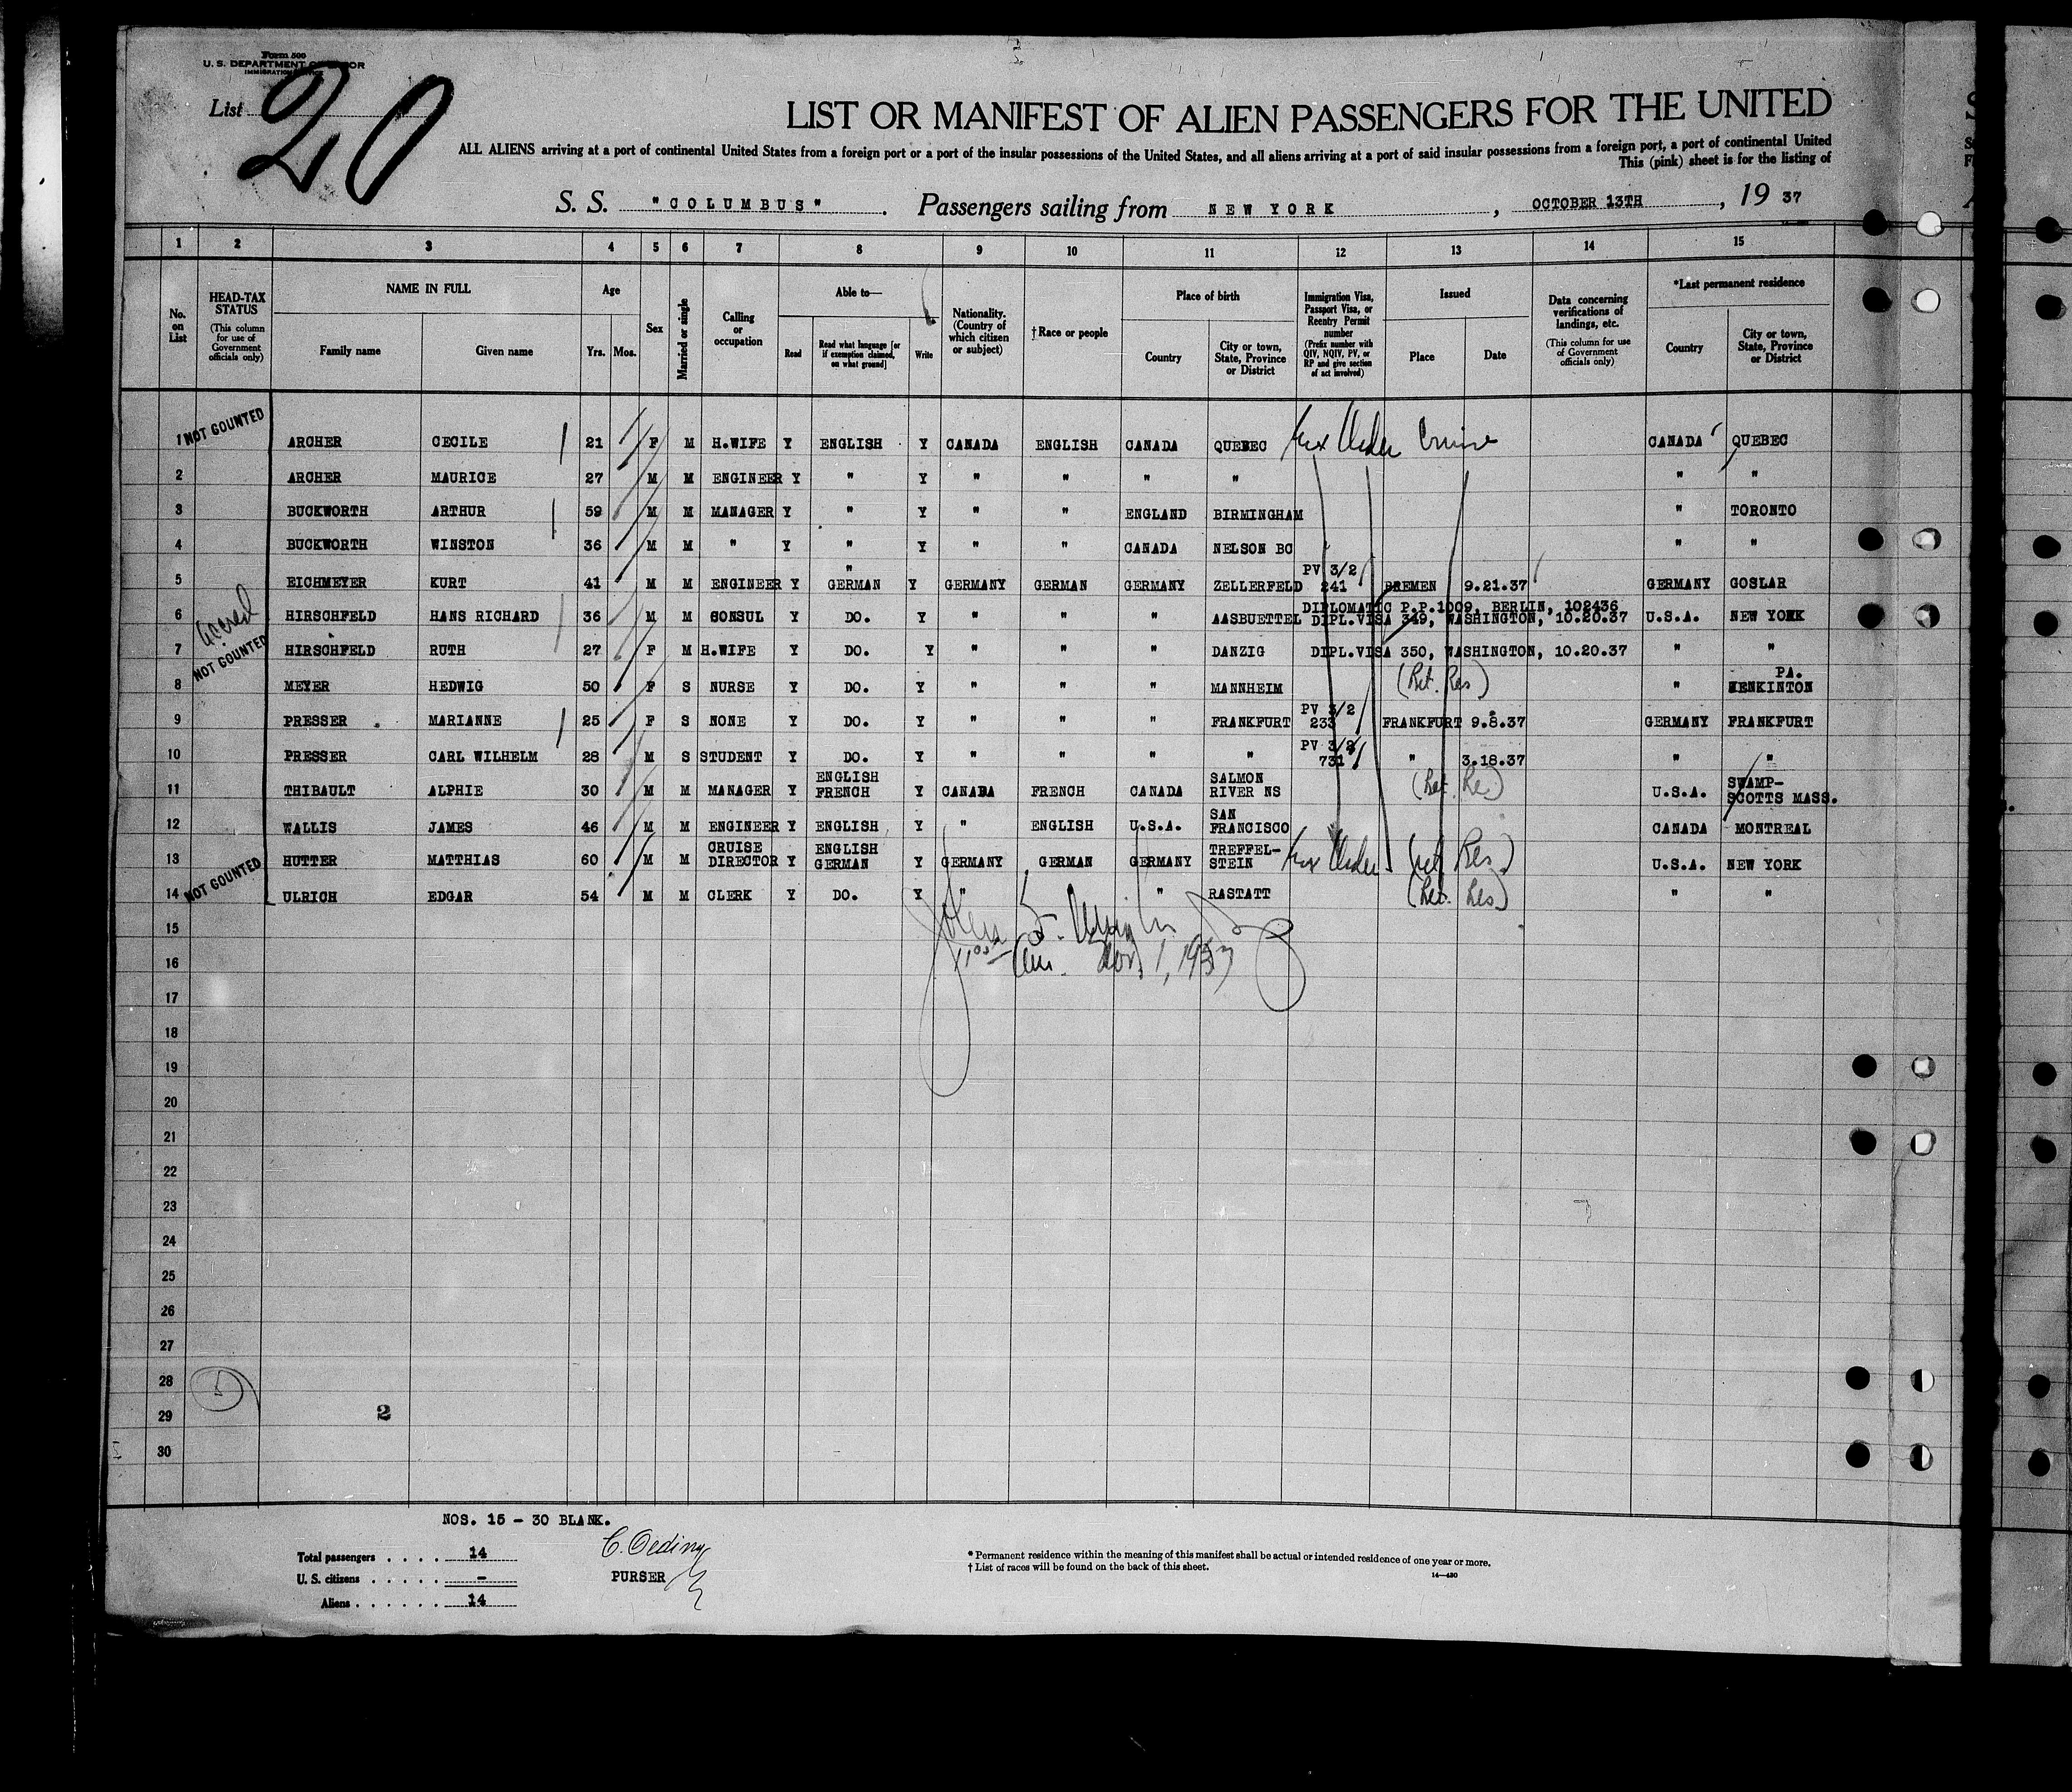 Form 500
U. S. DEPARTMENT OF LABOR
IMMIGRATION SERVICE
List 20
LIST OR MANIFEST OF ALIEN PASSENGERS FOR THE UNITED
ALL ALIENS arriving at a port of continental United States from a foreign port or a port of the insular possessions of the United States, and all aliens arriving at a port of said insular possessions from a foreign port, a port of continental United
This (pink) sheet is for the listing of
S. S. "COLUMBUS". Passengers sailing from NEW YORK, OCTOBER 13TH, 19 37
1 2 3 4 5 6 7 8 9 10 11 12 13 14 15
No. on List
HEAD-TAX STATUS (This column for use of Government officials only)
NAME IN FULL
Family name Given name
Age
Yrs. Mos.
Sex
Married or single
Calling or occupation
Able to—
Read
Read what language [or if exemption claimed, on what ground]
Write
Nationality. (Country of which citizen or subject)
† Race or people
Place of birth
Country
City or town, State, Province or District
Immigration Visa, Passport Visa, or Reentry Permit number (Prefix number with QIV, NQIV, PV, or RP and give section of act involved)
Issued
Place Date
Data concerning verifications of landings, etc. (This column for use of Government officials only)
*Last permanent residence
Country
City or town, State, Province or District
1 NOT COUNTED ARCHER CECILE 21 F M H.WIFE Y ENGLISH Y CANADA ENGLISH CANADA QUEBEC Cruise CANADA QUEBEC
2 ARCHER MAURICE 27 M M ENGINEER Y " Y " " " " " "
3 BUCKWORTH ARTHUR 59 M M MANAGER Y " Y " " ENGLAND BIRMINGHAM " TORONTO
4 BUCKWORTH WINSTON 36 M M " Y " Y " " CANADA NELSON BC " "
5 EICHMEYER KURT 41 M M ENGINEER Y " GERMAN Y GERMANY GERMAN GERMANY ZELLERFELD PV 3/2 241 BREMEN 9.21.37 GERMANY GOSLAR
6 HIRSCHFELD HANS RICHARD 36 M M CONSUL Y DO. Y " " " AASBUETTEL DIPLOMATIC P.P.1009, BERLIN, 102436 DIPL.VISA 349, WASHINGTON, 10.20.37 U.S.A. NEW YORK
7 NOT COUNTED HIRSCHFELD RUTH 27 F M H.WIFE Y DO. Y " " " DANZIG DIPL.VISA 350, WASHINGTON, 10.20.37 " "
8 MEYER HEDWIG 50 F S NURSE Y DO. Y " " " MANNHEIM (Ret. Res) " PA. JENKINTON
9 PRESSER MARIANNE 25 F S NONE Y DO. Y " " " FRANKFURT PV 3/2 233 FRANKFURT 9.8.37 GERMANY FRANKFURT
10 PRESSER CARL WILHELM 28 M S STUDENT Y DO. Y " " " " PV 3/2 731 " 3.18.37 " "
11 THIBAULT ALPHIE 30 M M MANAGER Y ENGLISH FRENCH Y CANADA FRENCH CANADA SALMON RIVER NS (Ret. Re) U.S.A. SWAMP-SCOTTS MASS.
12 WALLIS JAMES 46 M M ENGINEER Y ENGLISH Y " ENGLISH U.S.A. SAN FRANCISCO CANADA MONTREAL
13 HUTTER MATTHIAS 60 M M CRUISE DIRECTOR Y ENGLISH GERMAN Y GERMANY GERMAN GERMANY TREFFEL-STEIN (Ret. Res) U.S.A. NEW YORK
14 NOT COUNTED ULRICH EDGAR 54 M M CLERK Y DO. Y " " " RASTATT (Ret. Res) " "
15
16 Nov 1, 1937
17
18
19
20
21
22
23
24
25
26
27
28 5
29 2
30
NOS. 15 - 30 BLANK.
Total passengers . . . . 14
U. S. citizens . . . . . -
Aliens . . . . . 14
C. Oeding
PURSER
* Permanent residence within the meaning of this manifest shall be actual or intended residence of one year or more.
† List of races will be found on the back of this sheet.
14—430